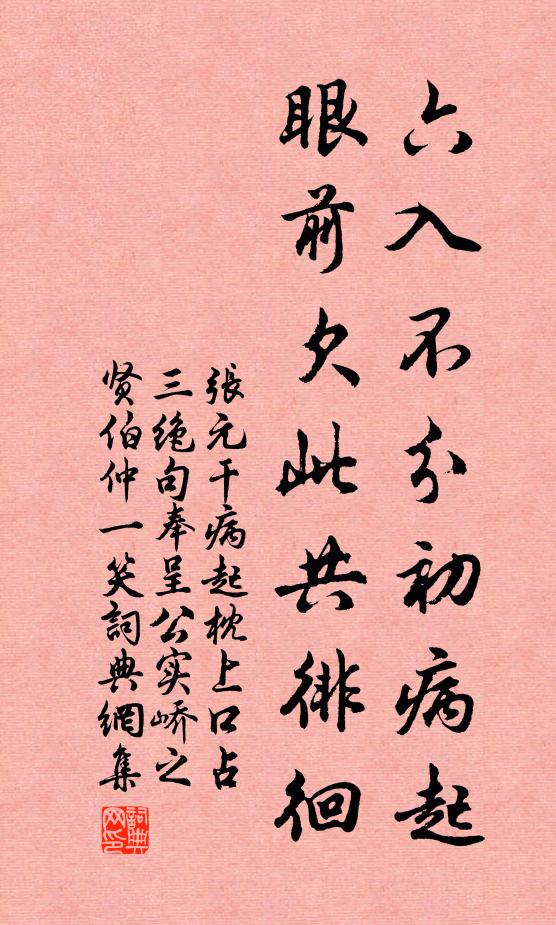 六入不分初病起
眼前欠此共徘徊
張元干病起枕上口占
三绝句奉呈公实峤之
贤伯仲一笑詞典網集
詞典
网印